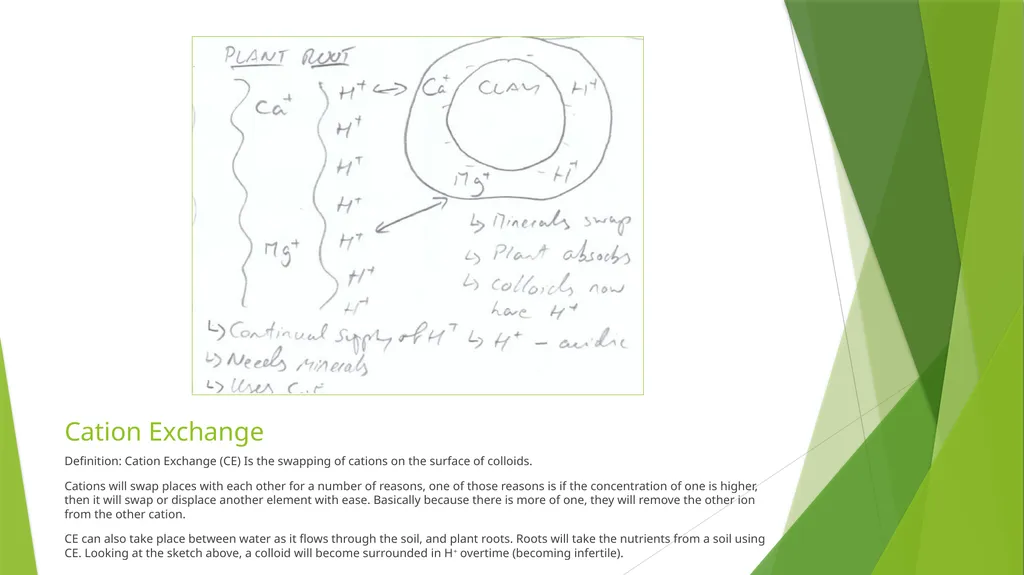 PLANT ROOT
Ca⁺
Mg⁺
H⁺
H⁺
H⁺
H⁺
H⁺
H⁺
H⁺
Ca⁺ CLAY H⁺
Mg⁺ H⁺
↳ Minerals swap
↳ Plant absorbs
↳ Colloids now
have H⁺
↳ H⁺ - acidic
↳ Continual supply of H⁺
↳ Needs Minerals
↳ Uses C.E
Cation Exchange
Definition: Cation Exchange (CE) Is the swapping of cations on the surface of colloids.
Cations will swap places with each other for a number of reasons, one of those reasons is if the concentration of one is higher,
then it will swap or displace another element with ease. Basically because there is more of one, they will remove the other ion
from the other cation.
CE can also take place between water as it flows through the soil, and plant roots. Roots will take the nutrients from a soil using
CE. Looking at the sketch above, a colloid will become surrounded in H⁺ overtime (becoming infertile).